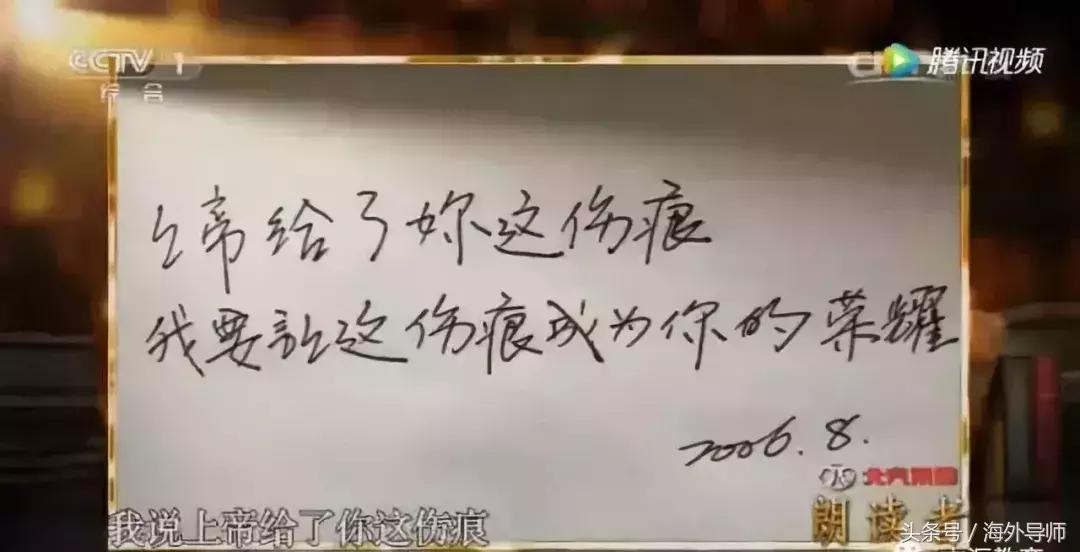 CCTV 1
综合
腾讯视频
上帝给了妳这伤痕
我要让这伤痕成为你的荣耀
2006.8.
北汽集团
我说上帝给了你这伤痕
朗读者
头条号/海外导师